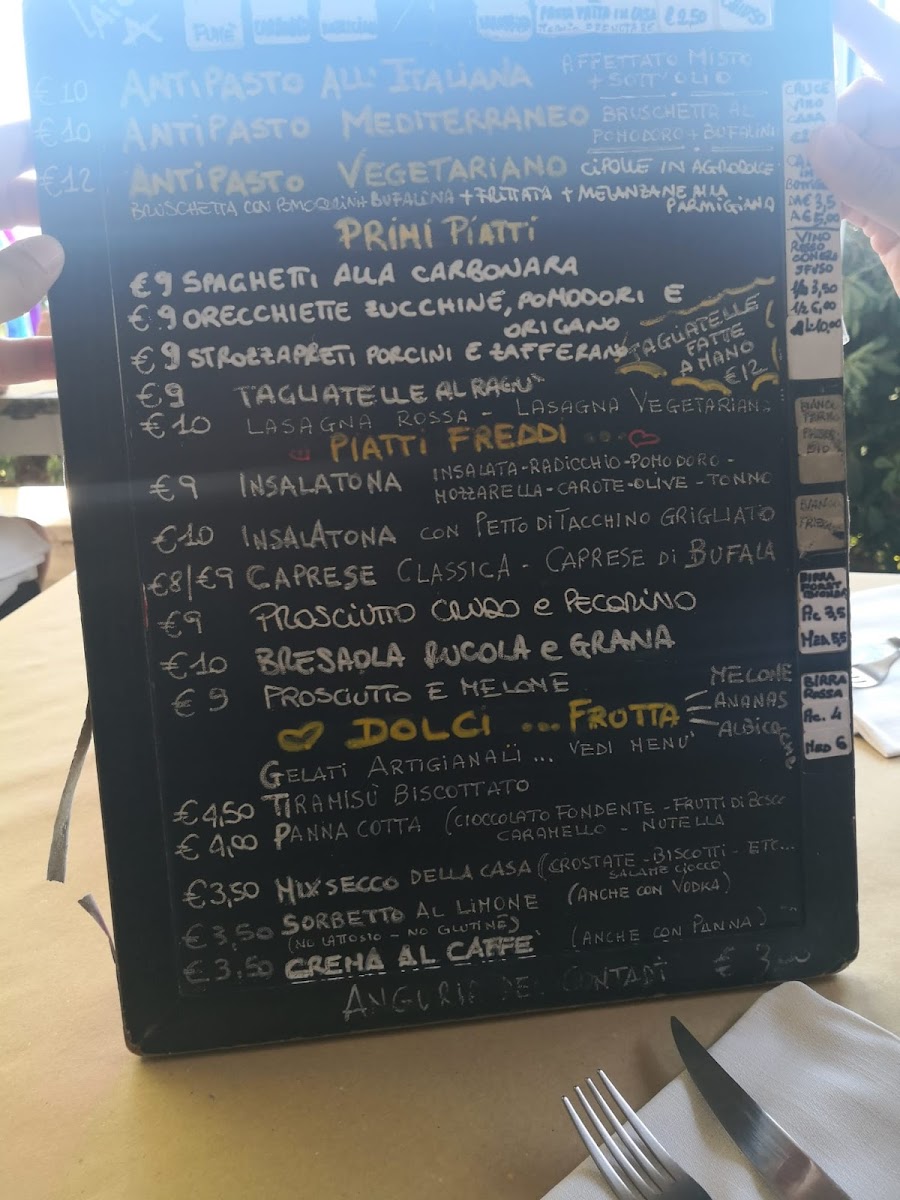 FUMÈ
PASTA FATTA IN CASA
€ 2,50
€10 ANTIPASTO ALL'ITALIANA AFFETTATO MISTO
+ SOTT'OLIO
€10 ANTIPASTO MEDITERRANEO BRUSCHETTA AL
POMODORO + BUFALINI
€12 ANTIPASTO VEGETARIANO CIPOLLE IN AGRODOLCE
BRUSCHETTA CON POMODORINI BUFALINA + FRITTATA + MELANZANE ALLA
PARMIGIANA
PRIMI PIATTI
€9 SPAGHETTI ALLA CARBONARA
€9 ORECCHIETTE ZUCCHINE, POMODORI E
ORIGANO
€9 STROZZAPRETI PORCINI E ZAFFERANO
TAGLIATELLE
FATTE
A MANO
€12
€9 TAGLIATELLE AL RAGU'
€10 LASAGNA ROSSA - LASAGNA VEGETARIANA
PIATTI FREDDI ...
€9 INSALATONA INSALATA-RADICCHIO-POMODORO-
MOZZARELLA-CAROTE-OLIVE-TONNO
€10 INSALATONA CON PETTO DI TACCHINO GRIGLIATO
€8/€9 CAPRESE CLASSICA - CAPRESE DI BUFALA
€9 PROSCIUTTO CRUDO e PECORINO
€10 BRESAOLA RUCOLA e GRANA
€9 PROSCIUTTO E MELONE
DOLCI ... FRUTTA
MELONE
ANANAS
ALBICOCCHE
GELATI ARTIGIANALI... VEDI MENU'
€4,50 TIRAMISÙ BISCOTTATO
€4,00 PANNA COTTA (CIOCCOLATO FONDENTE - FRUTTI DI BOSCO
CARAMELLO - NUTELLA
€3,50 MIX SECCO DELLA CASA (CROSTATE - BISCOTTI - ETC...
SALAME CIOCCO
€3,50 SORBETTO AL LIMONE (ANCHE CON VODKA)
(NO LATTOSIO - NO GLUTINE)
€3,50 CREMA AL CAFFE' (ANCHE CON PANNA)
ANGURIA DEI CONTADI € 3
CALICE
VINO
CASA
DA € 3,5
A € 5,00
VINO
ROSSO
CONERO
SFUSO
1/4 3,50
1/2 6,00
1L 10,00
BIRRA
FORST
BIONDA
Pic 3,5
MED 5,5
BIRRA
ROSSA
Pic. 4
MED 6